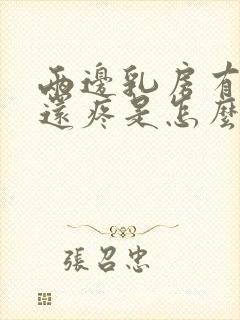 兩邊乳房有
還疼是怎麼
張召忠